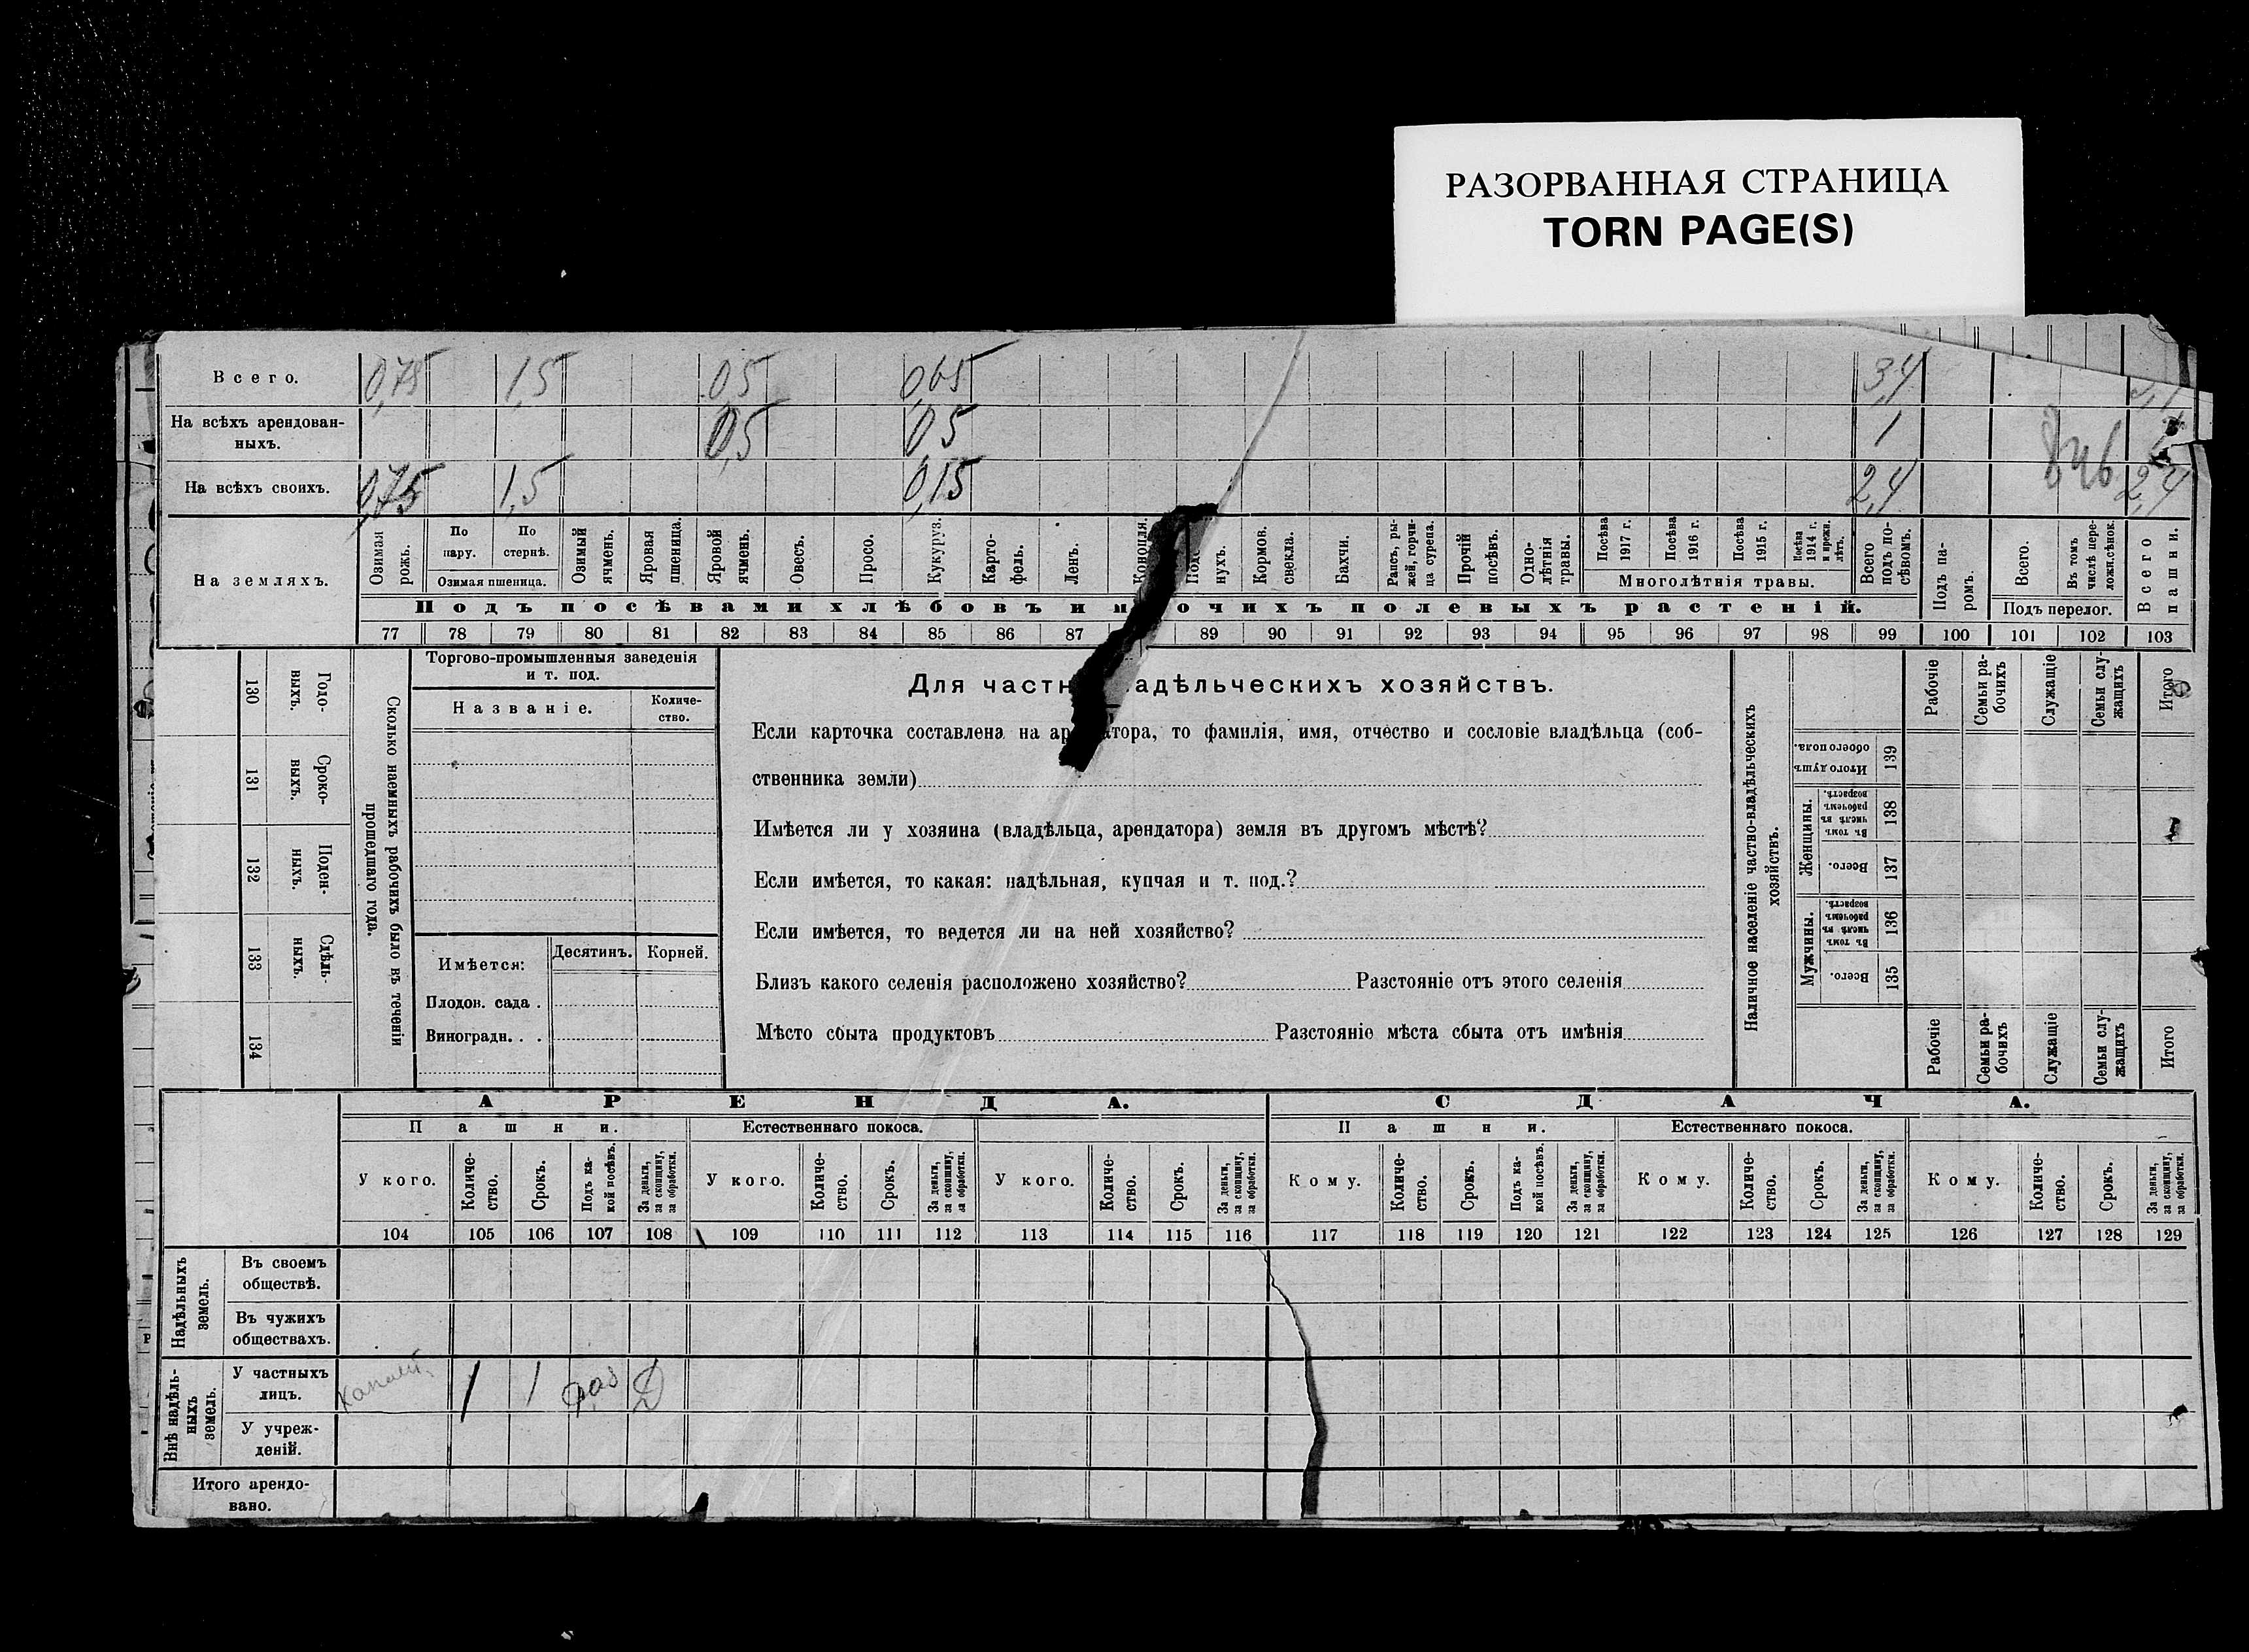 РАЗОРВАННАЯ СТРАНИЦА
TORN PAGE(S)
Всего. 0,75 1,5 0,5 0,65 3,4
На всѣхъ арендован-
ныхъ. 0,5 05 1
На всѣхъ своихъ. 0,75 1,5 0,15 2,4 2,4
846
На земляхъ.
Озимая рожь.
По пару.
По стернѣ.
Озимая пшеница.
Озимый ячмень.
Яровая пшеница.
Яровой ячмень.
Овесъ.
Просо.
Кукуруз.
Карто-
фель.
Ленъ.
Конопля.
нухъ.
Кормов. свекла.
Бахчи.
Рапсъ, ры-
жей, горчи-
ца сурепа.
Прочій посѣвъ.
Одно-
лѣтнія травы.
Посѣва 1917 г.
Посѣва 1916 г.
Посѣва 1915 г.
Посѣва 1914 г. и прежн. лѣтъ.
Многолѣтнія травы.
Всего подъ по-
сѣвомъ.
Подъ па-
ромъ.
Всего.
Въ томъ числѣ пере-
ложн.сѣнок.
Подъ перелог.
Всего пашни.
Подъ посѣвами хлѣбовъ и очихъ полевыхъ растеній.
77 78 79 80 81 82 83 84 85 86 87 89 90 91 92 93 94 95 96 97 98 99 100 101 102 103
Сколько наемныхъ рабочихъ было въ теченіи
прошедшаго года.
Годо-
выхъ. 130
Сроко-
выхъ. 131
Поден-
ныхъ. 132
Сдѣль-
ныхъ. 133
134
Торгово-промышленныя заведенія
и т. под.
Названіе.
Количе-
ство.
Имѣется:
Десятинъ. Корней.
Плодов. сада .
Виноградн. . .
Для частн адѣльческихъ хозяйствъ.
Если карточка составлена на ар тора, то фамилія, имя, отчество и сословіе владѣльца (соб-
ственника земли)
Имѣется ли у хозяина (владѣльца, арендатора) земля въ другомъ мѣстѣ?
Если имѣется, то какая: надѣльная, купчая и т. под.?
Если имѣется, то ведется ли на ней хозяйство?
Близъ какого селенія расположено хозяйство? Разстояніе отъ этого селенія
Мѣсто сбыта продуктовъ Разстояніе мѣста сбыта отъ имѣнія
Наличное населеніе частно-владѣльческихъ
хозяйствъ.
Итого душъ обоего пола. 139
Женщины.
Въ томъ числѣ въ рабочемъ возрастѣ. 138
Всего. 137
Мужчины.
Въ томъ числѣ въ рабочемъ возрастѣ. 136
Всего. 135
Рабочіе
Семьи ра-
бочихъ
Служащіе
Семьи слу-
жащихъ
Итого
Рабочіе
Семьи ра-
бочихъ
Служащіе
Семьи слу-
жащихъ
Итого
АРЕНДА. СДАЧА.
Пашни. Естественнаго покоса. Пашни. Естественнаго покоса.
У кого.
Количе-
ство.
Срокъ.
Подъ ка-
кой посѣвъ.
За деньги,
за скопщину,
за обработки.
У кого.
Количе-
ство.
Срокъ.
За деньги,
за скопщину,
за обработки.
У кого.
Количе-
ство.
Срокъ.
За деньги,
за скопщину,
за обработки.
Кому.
Количе-
ство.
Срокъ.
Подъ ка-
кой посѣвъ.
За деньги,
за скопщину,
за обработки.
Кому.
Количе-
ство.
Срокъ.
За деньги,
за скопщину,
за обработки.
Кому.
Количе-
ство.
Срокъ.
За деньги,
за скопщину,
за обработки.
104 105 106 107 108 109 110 111 112 113 114 115 116 117 118 119 120 121 122 123 124 125 126 127 128 129
Надѣльныхъ
земель.
Въ своемъ
обществѣ.
Въ чужихъ
обществахъ.
Внѣ надѣль-
ныхъ
земель.
У частныхъ
лицъ. 1 1 Д
У учреж-
деній.
Итого арендо-
вано.